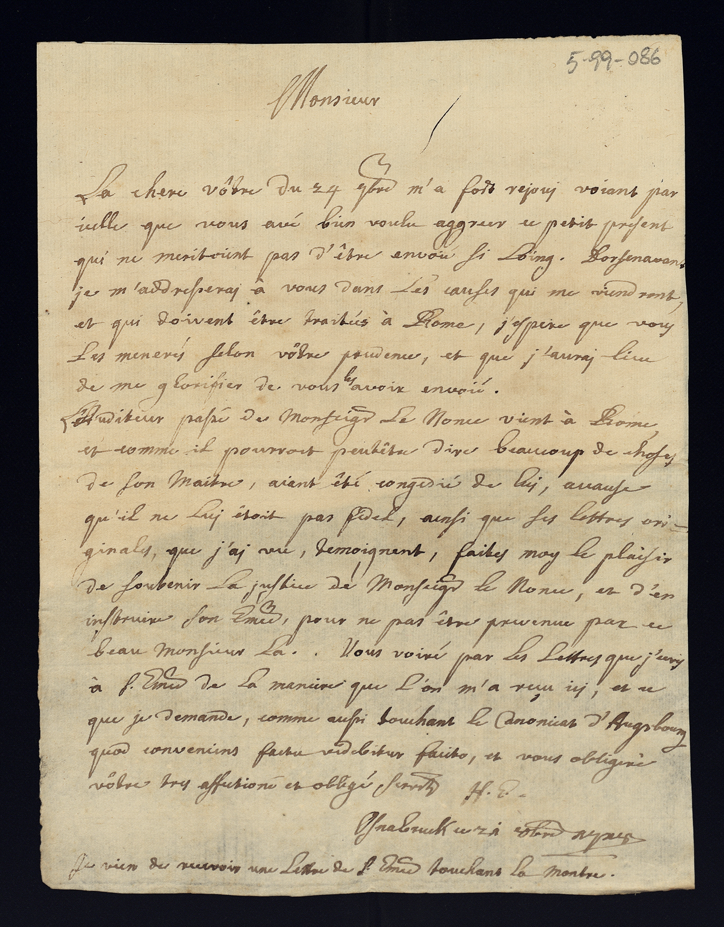 5-99-086
Monsieur
La chere vôtre du 24 9bre m'a fort rejouj voiant par
icelle que vous avé bien voulu aggreer ce petit present
qui ne meritoient pas d'être envoié si Loing. Dorsenavant
je m'addresseraj à vous dans Les causes qui me viendront,
et qui doivent être traités à Rome, j'espere que vous
Les menerés selon vôtre prudence, et que j'auraj lieu
de me glorifier de vous les avoir envoié.
L'Auditeur passé de Monseigr Le Nonce vient à Rome,
et comme il pourroit peutétre dire beaucoup de choses
de son Maitre, aiant été congedié de Luj, acause
qu'il ne Luj étoit pas fidel, ainsi que ses lettres ori=
ginales, que j'aj vue, temoignent, faites moy le plaisir
de soutenir La justice de Monseigr le Nonce, et d'en
instruire son Emce, pour ne pas être prevenue par ce
beau Monsieur La. . Vous voiré par les Lettres que j'
à S. Emce de La maniere que L'on m'a reçu icj, et ce
que je demande, comme aussi touchant le Canonicat d'Augsbourg
quod conveniens factu videbitur facito, et vous obligerè
vôtre tres affectioné et obligé Servitr H. E.
Osnabruck ce 21
Je vien de recevoir une Lettre de S. Emce touchant La montre.